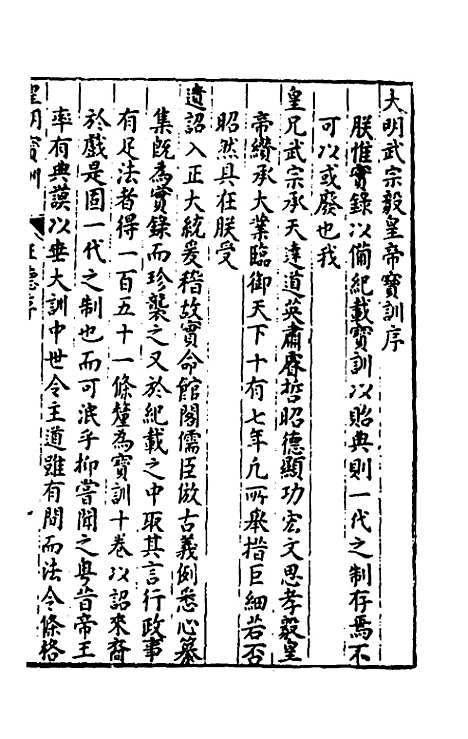 大明武宗毅皇帝寳訓序
朕惟實錄以備紀載寳訓以貽典則一代之制存焉不
可以或廢也我
皇兄武宗承天達道英肅睿哲昭德顯功宏文思孝毅皇
帝纘承大業臨御天下十有七年凡所舉措巨細若否
昭然具在朕受
遺詔入正大統爰稽故實命館閣儒臣倣古義例悉心纂
集既為實錄而珍襲之又於紀載之中取其言行政事
有足法者得一百五十一條釐為寳訓十卷以詔來裔
於戲是固一代之制也而可泯乎抑嘗聞之粵昔帝王
率有典謨以垂大訓中世令主道雖有間而法令條格
皇明寳訓 正德序